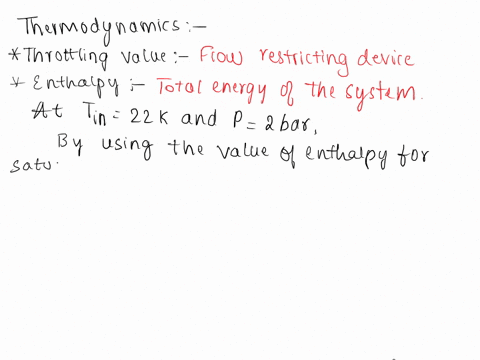 Thermodynamics:-
*Throttling value:- Flow restricting device
* Enthalpy:- Total energy of the system.
At Tin = 22K and P = 2 bar,
By using the value of enthalpy for
satu